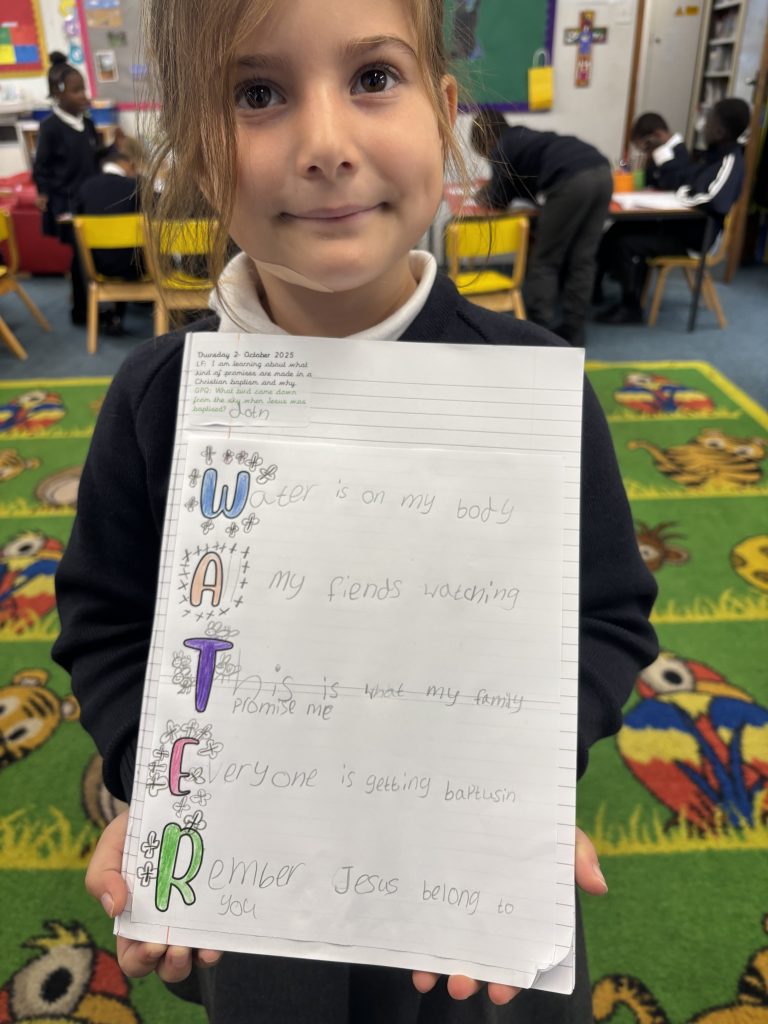 Thursday 2 October 2025
LF: I am learning about what
kind of promises are made in a
Christian baptism and why.
GPQ: What bird came down
from the sky when Jesus was
baptised?
Water is on my body
A my fiends watching
This is what my family
promise me
Everyone is getting baptusin
Rember Jesus belong to
you